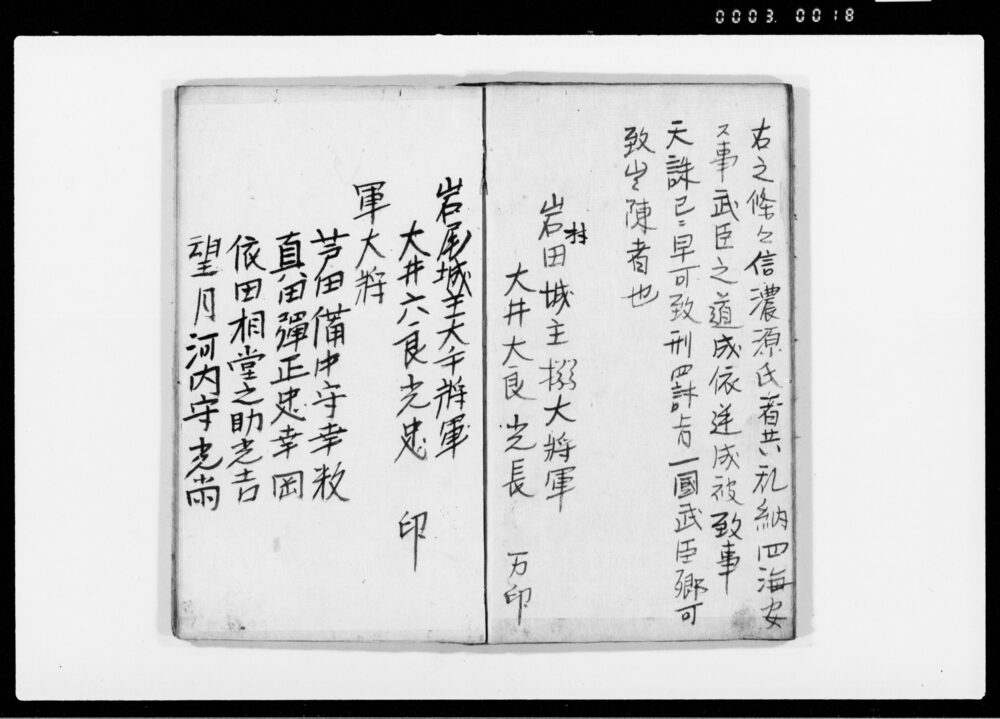 0003.0018
右之條々信濃源氏者共乱納四海安
又事武臣之道成依逆成被致事
天誅已ニ早可致刑四誅旨一國武臣郷可
致 陳者也
岩村田城主 大將軍
大井大良光長 万印
岩尾城主大千將軍
大井六良光忠 印
軍大将
芦田備中守幸数
真田彈正忠幸岡
依田相堂之助光吉
望月河内守光尚